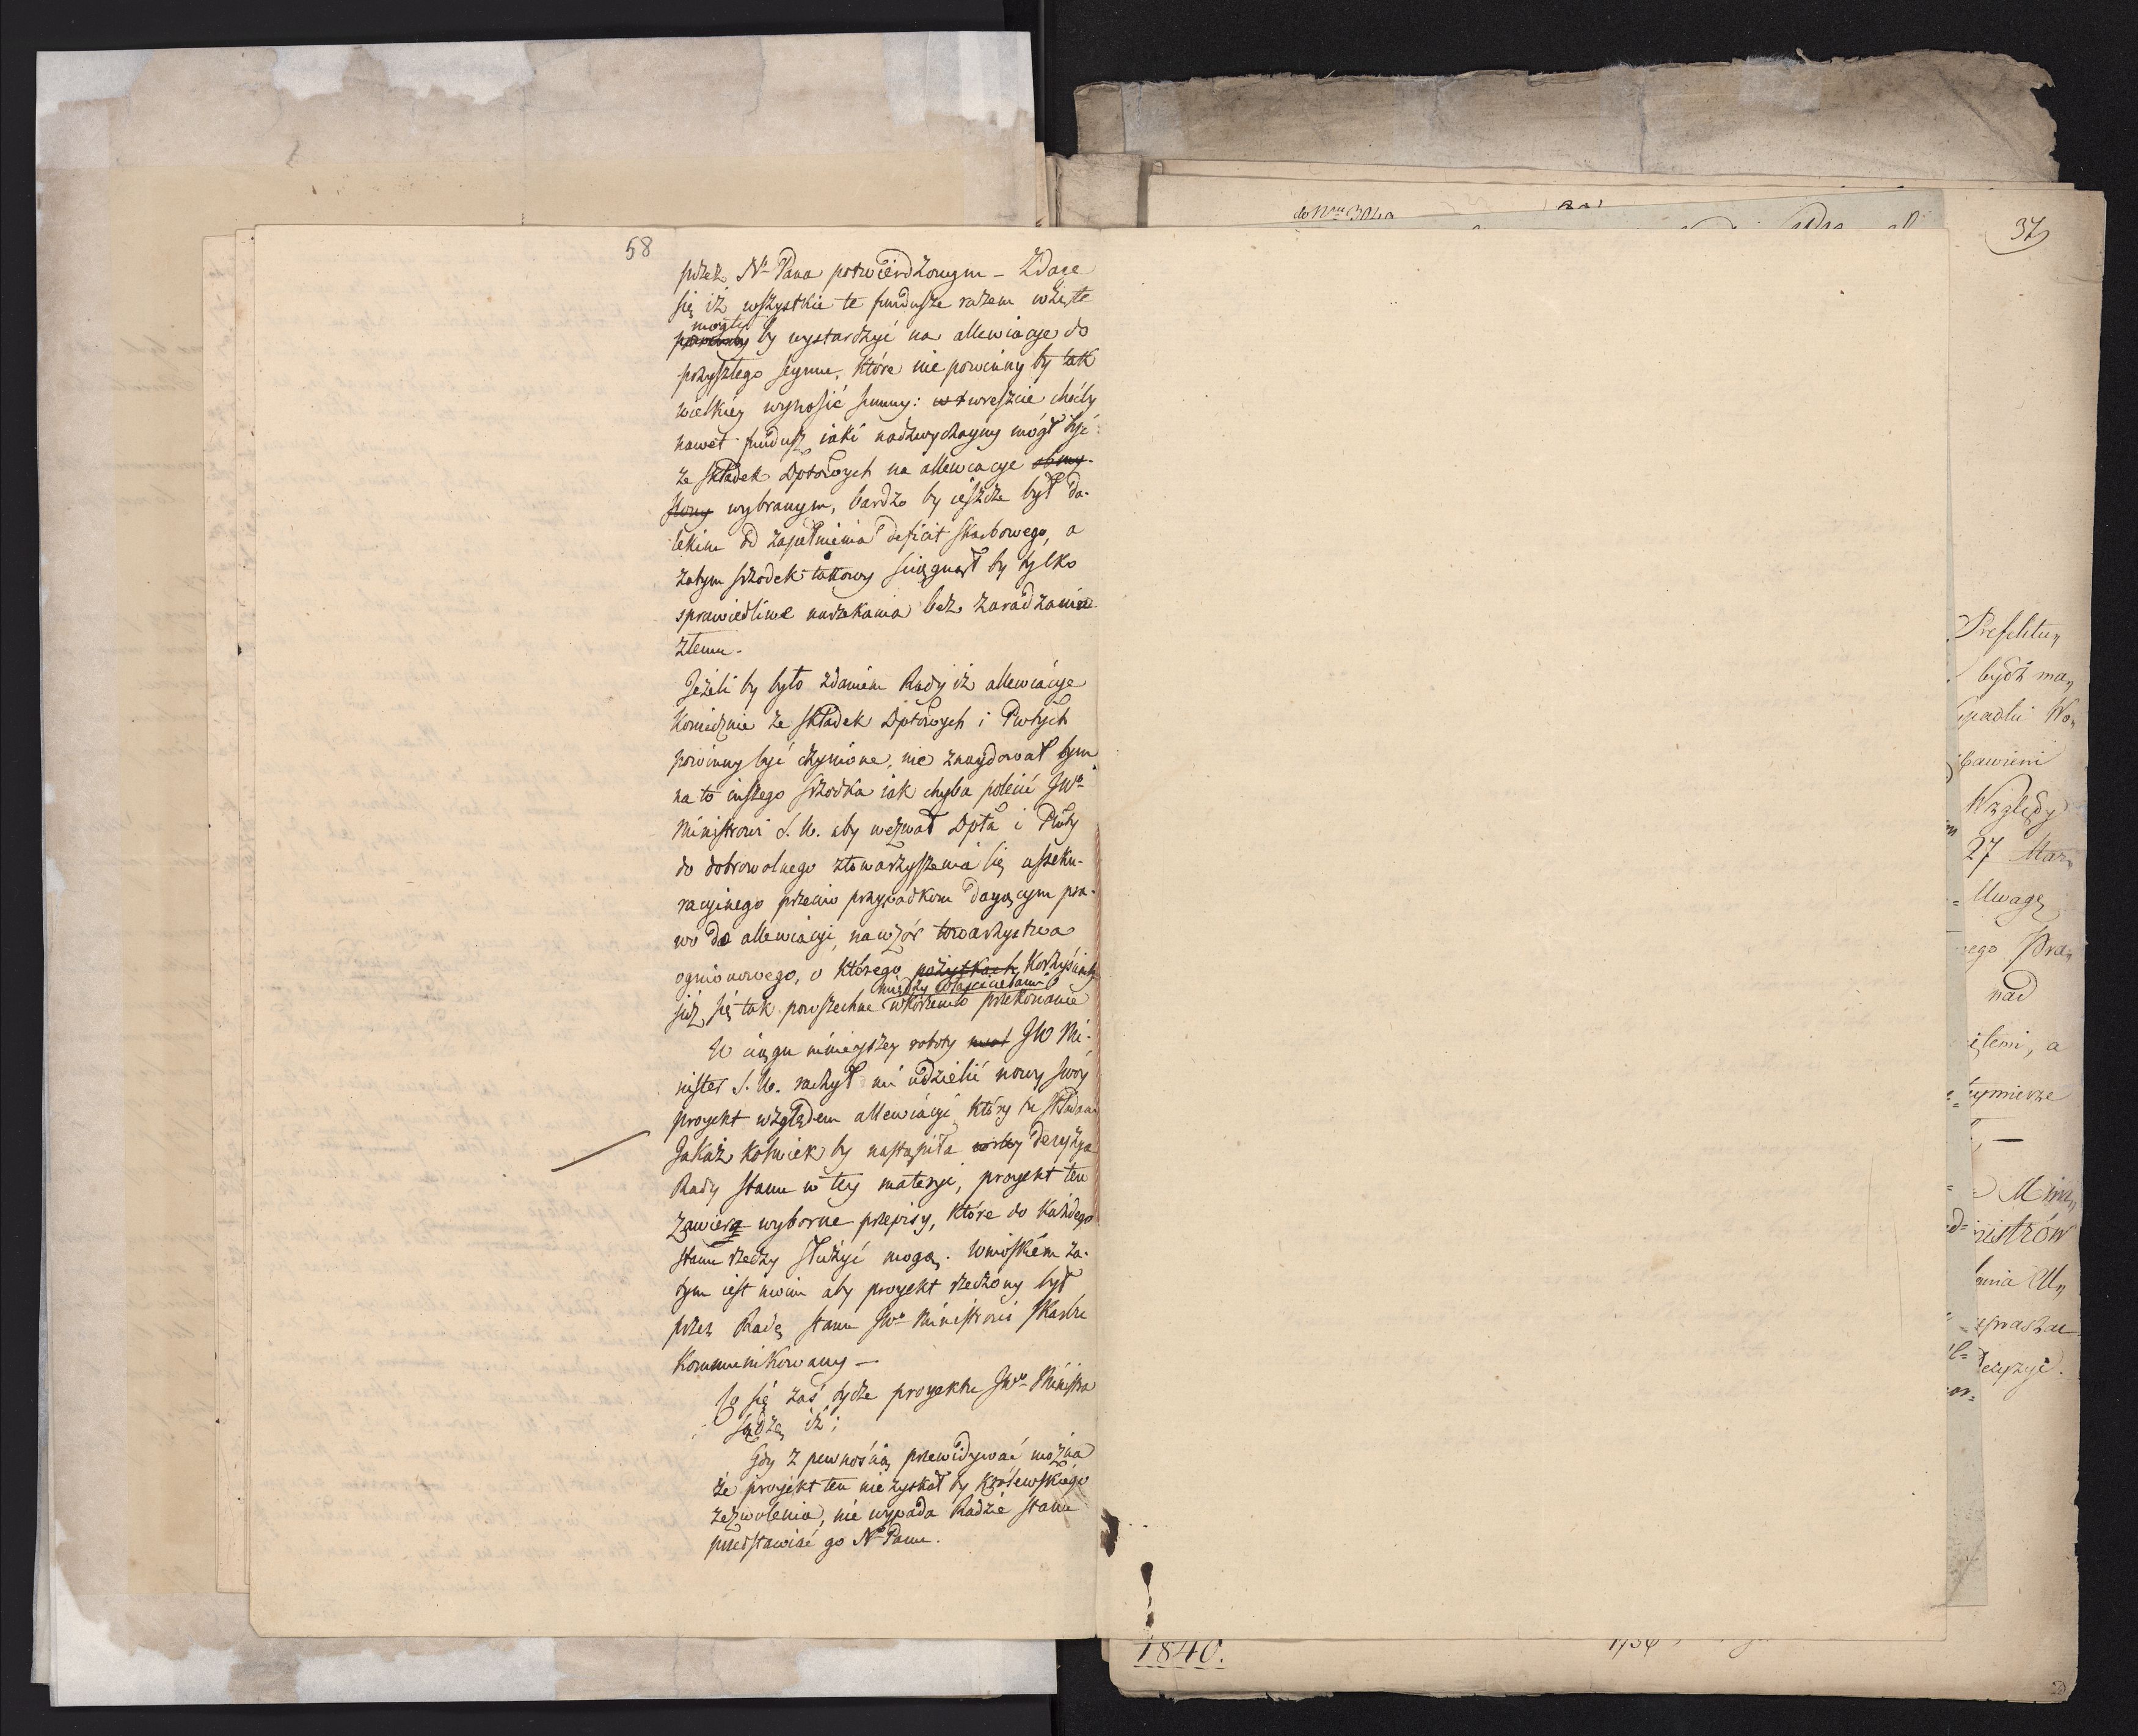 58
przez No Pana potwierdzonym – Zdaje
się iż wszystkie te fundusze razem wzięte
mogły
powinny by wystarczyć na allewiacye do
przyszłego seymu, które nie powinny by tak
wielkiey wynosić summy: wreszcie choćby
nawet fundusz iaki nadzwyczayny mógł być
ze składek Dptowych na allewiacye obmy-
slony wybranym, bardzo by ieszcze był da-
lekim od zapełnienia deficit skarbowego, a
zatym srzodek takowy sciągnął by tylko
sprawiedliwe narzekania bez zaradzania
złemu.
Jeżeli by było zdaniem Rady iż allewiacye
koniecznie ze składek Dptowych i Ptwtych
powinny być czynione, nie znaydował bym
na to inszego srzodka iak chyba polecić JWo
Ministrowi S. W. aby wezwał Dpta i Ptwty
do dobrowolnego stowarzyszenia się asseku-
racyinego przeciw przypadkom daiącym pra-
wo do allewiacyi, nawzór towarzystwa
ogniowowego, o którego pożytkach korzyściach
między właścicielami
iuż się tak powszechne wkorzeniło przekonanie
W ciągu ninieyszey roboty JW Mi-
nister S. W. raczył mi udzielić nowy swoy
proyekt względem allewiacyi który tu składam
Jakaż kolwiek by nastąpiła decyzya
Rady stanu w tey materyi, proyekt ten
zawiera wyborne przepisy, które do każdego
stanu rzeczy służyć mogą. Wnioskiem za-
tym iest moim aby proyekt rzeczony był
przez Radę stanu JWo Ministrowi Skarbu
kommunikowany –
Co się zaś tycze proyektu JWo Ministra
sądzę iż;
Gdy z pewnością przewidywać można
że proyekt ten nie zyskał by królewskiego
zezwolenia, nie wypada Radzie stanu
przedstawiać go No Panu.
37
Prefektu„
bydź ma„
Względy
27 Mar„
Uwagę
nad
1840.